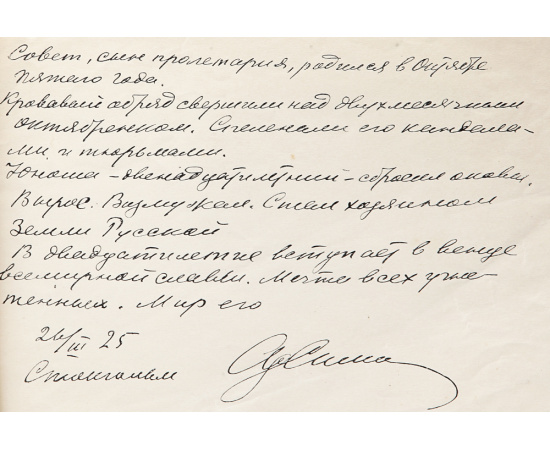 Совет, сын пролетария, родился в Октябре
пятого года.
Кровавый обряд свершили над двухмесячным
октябренком. Спеленали его кандала-
ми и тюрьмами.
Юноша - двенадцатилетний - сбросил оковы.
Вырос. Возмужал. Стал хозяином
Земли Русской
В двадцатилетие вступает в венце
всемирной славы. Мечта всех угне-
тенных. Мир его
26/III 25
Стокгольм